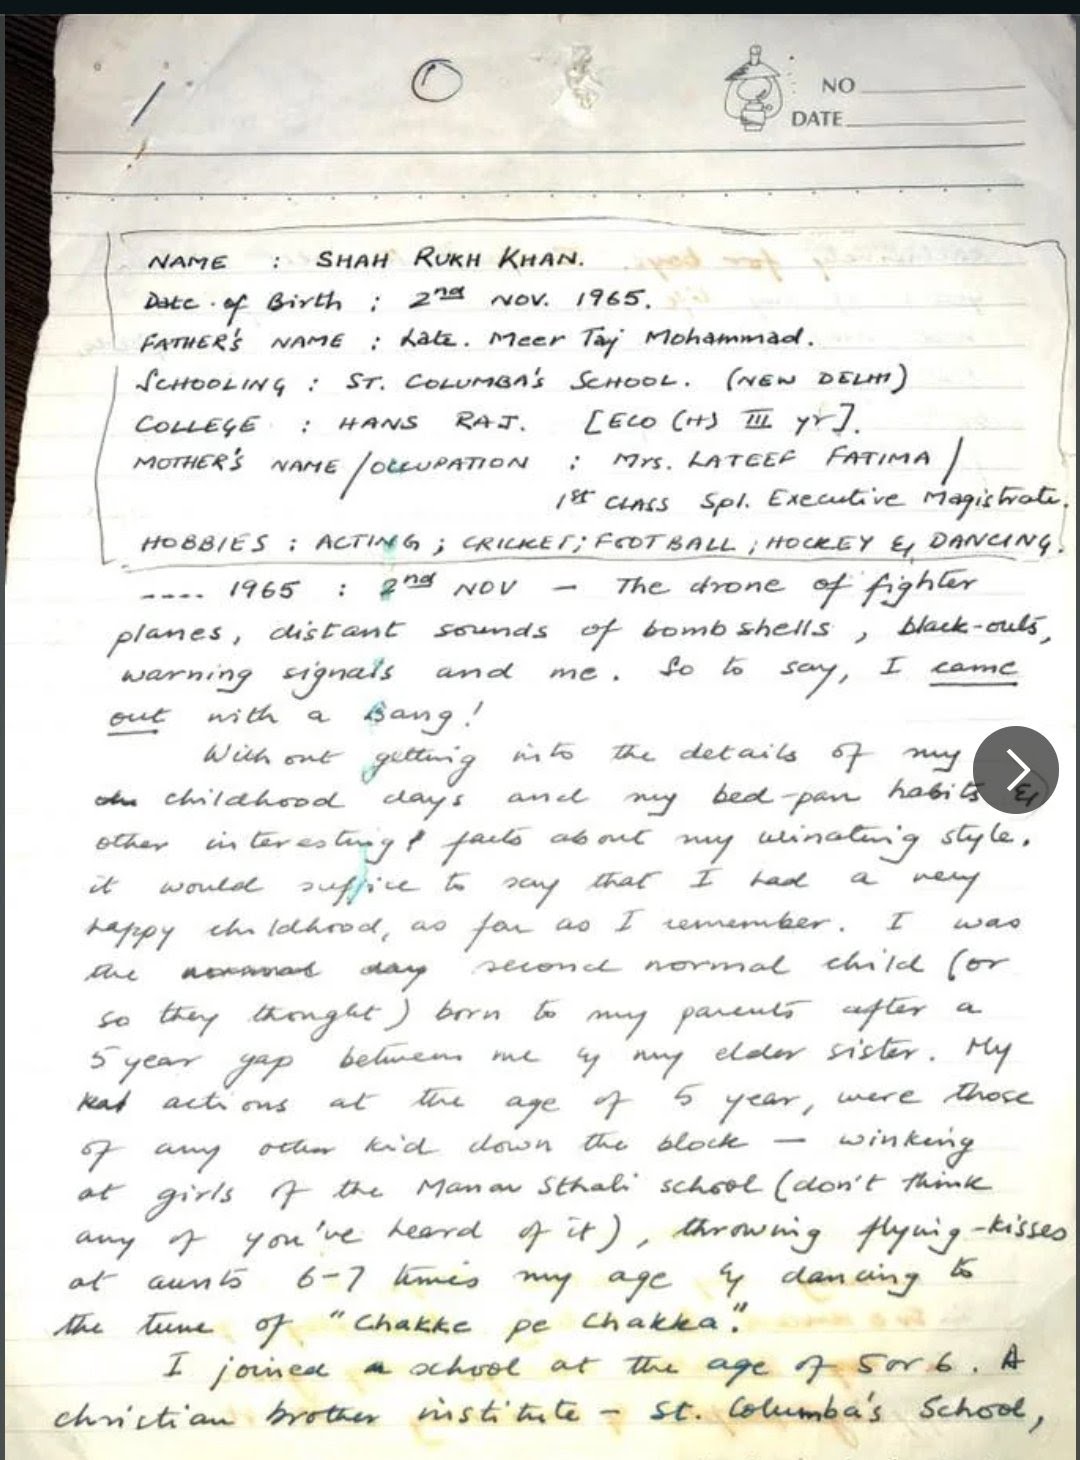 1
NO
DATE
NAME : SHAH RUKH KHAN.
Date of Birth : 2nd NOV. 1965.
FATHER'S NAME : Late. Meer Taj Mohammad.
SCHOOLING : ST. COLUMBA'S SCHOOL. (NEW DELHI)
COLLEGE : HANS RAJ. [ECO (H) III yr].
MOTHER'S NAME/OCCUPATION : Mrs. LATEEF FATIMA/
1st CLASS Spl. Executive Magistrate.
HOBBIES : ACTING ; CRICKET; FOOTBALL ; HOCKEY & DANCING.
---- 1965 : 2nd NOV - The drone of fighter
planes, distant sounds of bomb shells, black-outs,
warning signals and me. So to say, I came
out with a Bang!
Without getting into the details of my
childhood days and my bed-pan habits &
other interesting facts about my urinating style,
it would suffice to say that I had a very
happy childhood, as far as I remember. I was
the normal day second normal child (or
so they thought) born to my parents after a
5 year gap between me & my elder sister. My
actions at the age of 5 year, were those
of any other kid down the block - winking
at girls of the Manav Sthali school (don't think
any of you've heard of it), throwing flying-kisses
at aunts 6-7 times my age & dancing to
the tune of "Chakke pe Chakka".
I joined a school at the age of 5 or 6. A
christian brother institute - St. Columba's School,